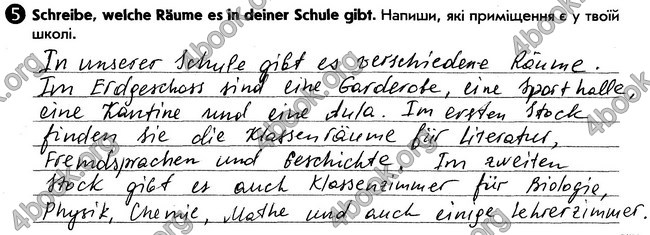 5 Schreibe, welche Räume es in deiner Schule gibt. Напиши, які приміщення є у твоїй
школі.
In unserer Schule gibt es verschiedene Räume.
Im Erdgeschoss sind eine Garderobe, eine Sporthalle,
eine Kantine und eine Aula. Im ersten Stock
finden sie die Klassenräume für Literatur,
Fremdsprachen und Geschichte. Im zweiten
Stock gibt es auch Klassenzimmer für Biologie,
Physik, Chemie, Mathe und auch einige Lehrerzimmer.